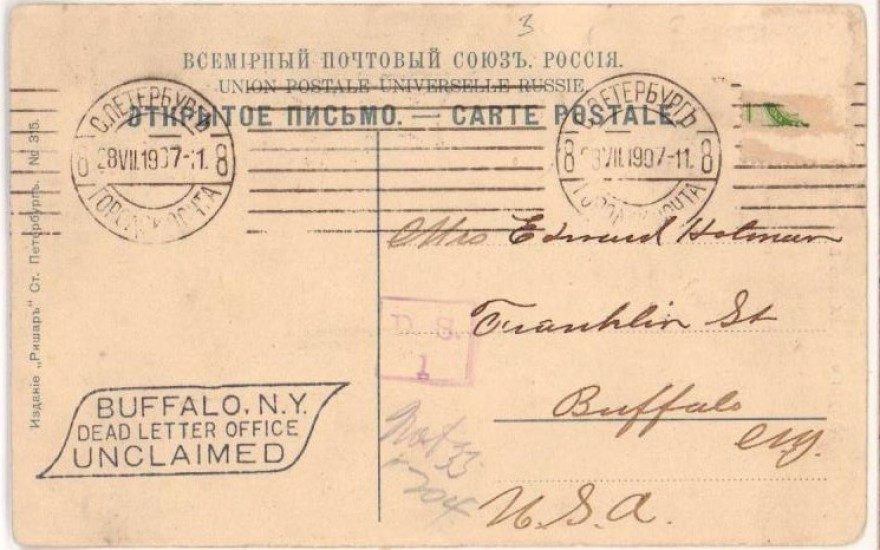 3
ВСЕМІРНЫЙ ПОЧТОВЫЙ СОЮЗЪ. РОССІЯ.
UNION POSTALE UNIVERSELLE RUSSIE.
ОТКРЫТОЕ ПИСЬМО. — CARTE POSTALE.
С.ПЕТЕРБУРГЪ
8 28VII.1907-11. 8
ГОРОД.ПОЧТА
С.ПЕТЕРБУРГЪ
8 28VII.1907-11. 8
ГОРОД.ПОЧТА
Mrs Edward Holman
Franklin St
Buffalo
N.Y.
U.S.A.
1
BUFFALO, N.Y.
DEAD LETTER OFFICE
UNCLAIMED
Not 33
204
Изданіе „Ришаръ" Ст. Петербургъ. № 315.